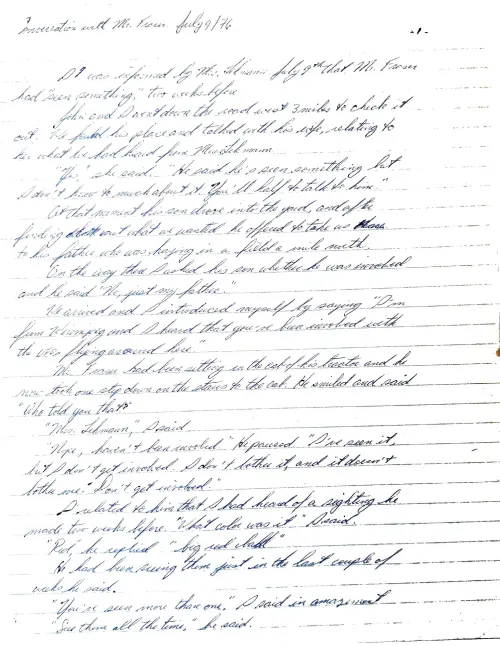 Conversation with Mr. Frasen July 9/76
-1-
I was informed by Mrs. Lehmann July 9th that Mr. Frasen
had "seen something," two weeks before
John and I went down the road west 3 miles to check it
out. We found his place and talked with his wife, relating to
her what we had heard from Mrs Lehmann
"Yes," she said. "He said he's seen something but
I don't know to much about it. You'll half to talk to him."
At that moment his son drove into the yard, and after
finding out what we wanted he offered to take us
to his father who was haying in a field a mile north.
On the way there I asked his son whether he was involved
and he said "No, just my father."
We arrived and I introduced myself by saying "I'm
from Winnipeg and I heard that you've been involved with
the UFOs flying around here"
Mr. Frasen had been sitting in the cab of his tractor and he
now took one step down on the stairs to the cab. He smiled and said
"Who told you that?"
"Mrs. Lehmann," I said.
"Nope, haven't been involved" He paused "I've seen it,
but I don't get involved. I don't bother it, and it doesn't
bother me. Don't get involved"
I related to him that I had heard of a sighting he
made two weeks before. "What color was it" I said.
"Red, he replied "big red ball"
He had been seeing them just in the last couple of
weeks he said.
"You've seen more than one," I said in amazement
"See them all the time," he said.